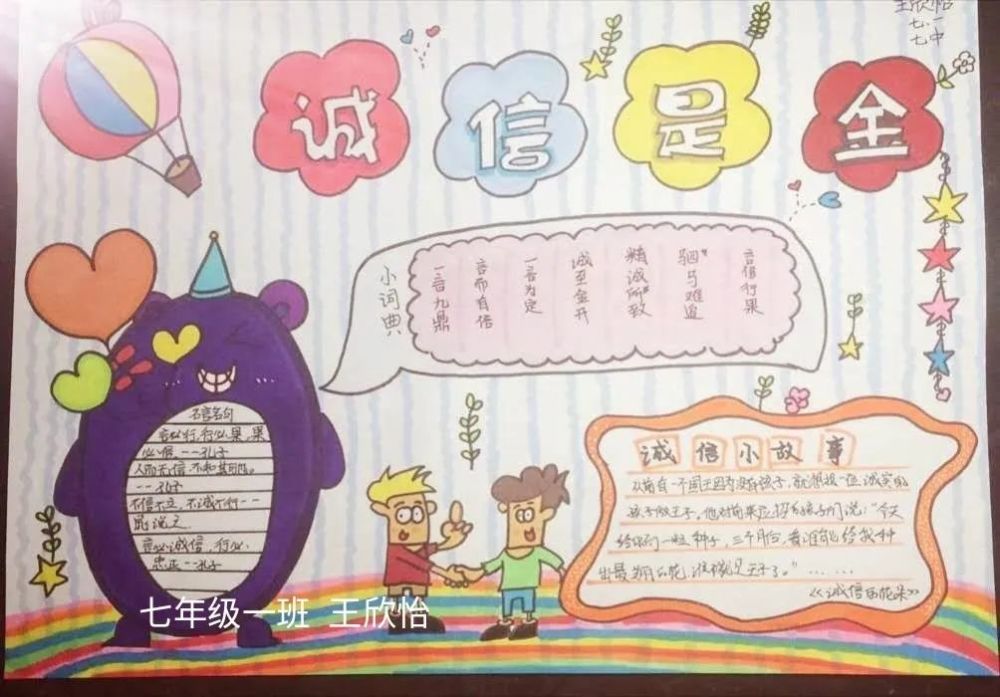 王欣怡
七.一
七中
诚信是金
小词典
一言九鼎
言而有信
一言为定
诚至金开
精诚所致
驷马难追
言信行果
名言名句
言必行,行必果,果
必信,--孔子
人而无信,不知其可也。
--孔子
不信不立,不诚不行--
晁说之
言必诚信,行必
忠正--孔子
诚信小故事
从前有一个国王因为没有孩子,就想找一位诚实的
孩子做王子。他对前来应招的孩子们说:“今天
给你们一粒种子,三个月后,看谁能给我种
出最好的花,谁就是王子了。”......
《诚信的花朵》
七年级一班 王欣怡